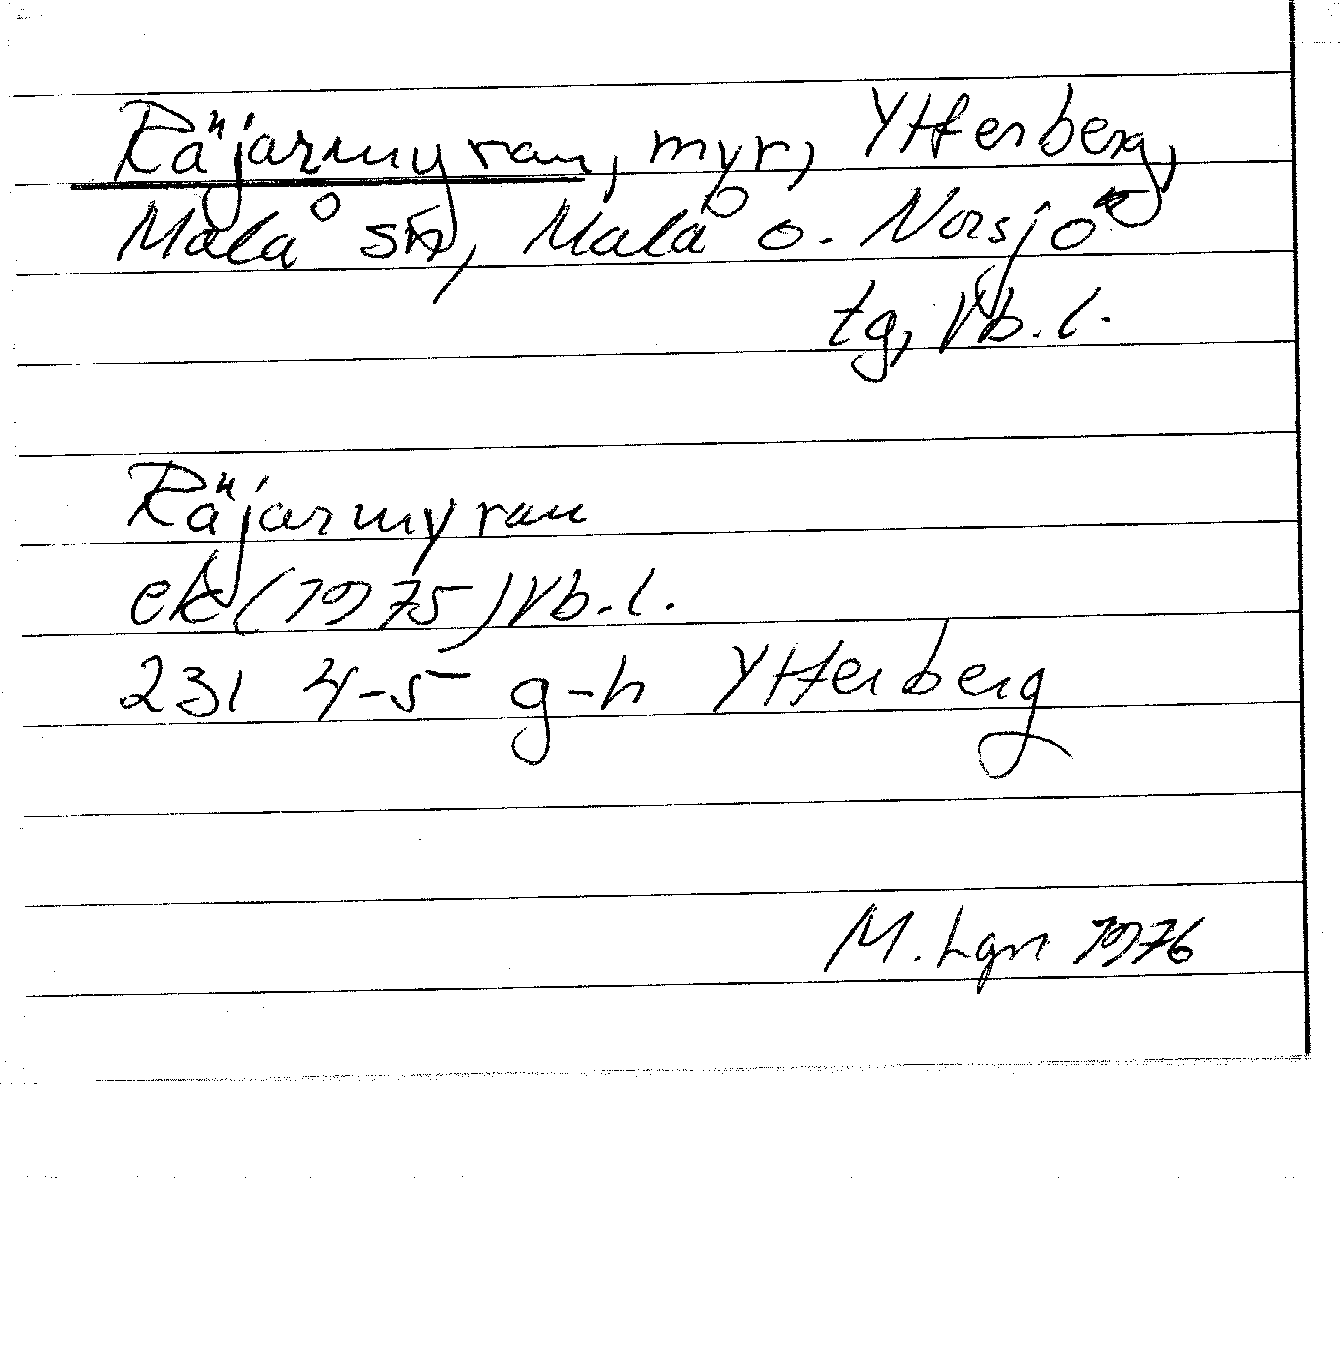 Räjarmyran, myr, Ytterberg,
Malå sn, Malå o. Norsjö
tg, Vb. l.
Räjarmyran
ek (1975) Vb. l.
231 4-5 g-h Ytterberg
M. Lgn 1976